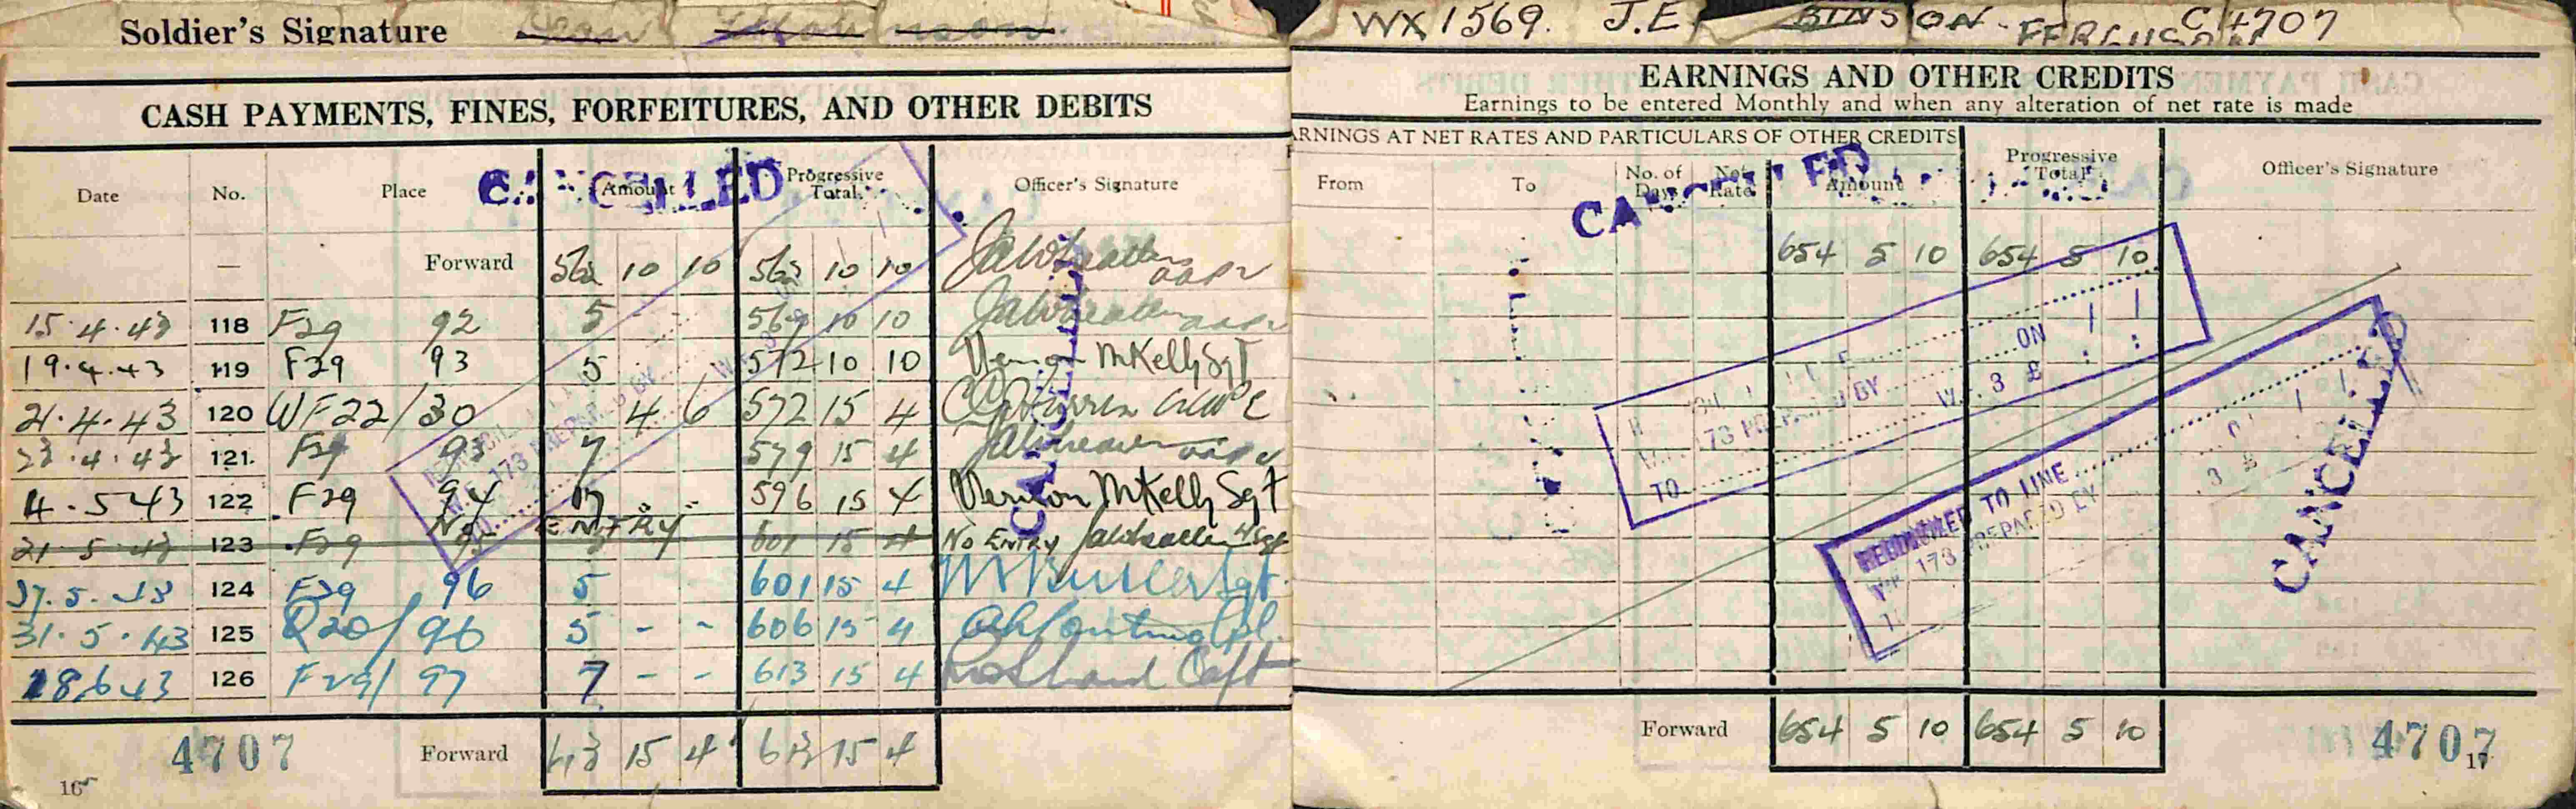 Soldier's Signature
CASH PAYMENTS, FINES, FORFEITURES, AND OTHER DEBITS
Date No. Place Amount Progressive Total Officer's Signature
CANCELLED
— Forward 562 10 10 562 10 10
15.4.43 118 F29 92 5 567 10 10
19.4.43 119 F29 93 5 572 10 10 Vernon McKelly Sgt
21.4.43 120 WF22/30 4 6 572 15 4
23.4.43 121 F29 93 7 579 15 4
4.5.43 122 F29 94 17 - - 596 15 4 Vernon McKelly Sgt
NO ENTRY
21 5 43 123 F29 95 5 601 15 4 No Entry
27.5.43 124 F29 96 5 601 15 4 Sgt
31.5.43 125 Q20/96 5 - - 606 15 4 Cpl.
18.6.43 126 F29/97 7 - - 613 15 4 Capt
4707 Forward 613 15 4 613 15 4
16
CANCELLED
173 PREPARED BY
WX1569. J.E. FERGUSON C4707
EARNINGS AND OTHER CREDITS
Earnings to be entered Monthly and when any alteration of net rate is made
RNINGS AT NET RATES AND PARTICULARS OF OTHER CREDITS
From To No. of Days Net Rate Amount Progressive Total Officer's Signature
CANCELLED
654 5 10 654 5 10
ON
173 PREPARED BY W. 3 £
TO
RECONCILED TO LINE
173 PREPARED BY 3 £
CANCELLED
Forward 654 5 10 654 5 10
4707
17